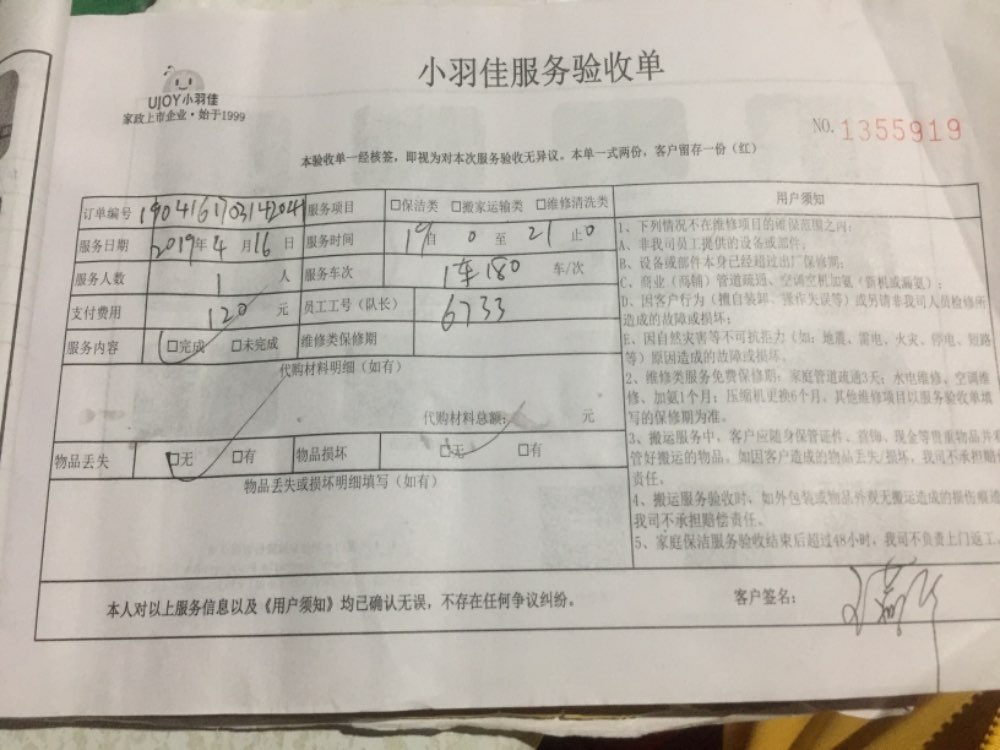 小羽佳服务验收单
UJOY小羽佳
家政上市企业·始于1999
NO. 1355919
本验收单一经核签，即视为对本次服务验收无异议。本单一式两份，客户留存一份（红）
订单编号 服务项目 □保洁类 □搬家运输类 □维修清洗类
服务日期 2019年4月16日 服务时间 19自0至21止0
服务人数 1人 服务车次 1车180 车/次
支付费用 120元 员工工号（队长） 6733
服务内容 □完成 □未完成 维修类保修期
代购材料明细（如有）
代购材料总额： 元
物品丢失 □无 □有 物品损坏 □无 □有
物品丢失或损坏明细填写（如有）
用户须知
1、下列情况不在维修项目的维保范围之内：
A、非我司员工提供的设备或部件；
B、设备或部件本身已经超过出厂保修期；
C、商业（商铺）管道疏通、空调空机加氨（新机或漏氨）；
D、因客户行为（擅自装卸、操作失误等）或另请非我司人员检修所
造成的故障或损坏；
E、因自然灾害等不可抗拒力（如：地震、雷电、火灾、停电、短路
等）原因造成的故障或损坏。
2、维修类服务免费保修期：家庭管道疏通3天；水电维修、空调维
修、加氨1个月；压缩机更换6个月，其他维修项目以服务验收单填
写的保修期为准。
3、搬运服务中，客户应随身保管证件、首饰、现金等贵重物品并
管好搬运的物品。如因客户造成的物品丢失/损坏，我司不承担赔偿
责任。
4、搬运服务验收时、如外包装或物品外观无搬运造成的损伤痕迹
我司不承担赔偿责任。
5、家庭保洁服务验收结束后超过48小时，我司不负责上门返工。
本人对以上服务信息以及《用户须知》均已确认无误，不存在任何争议纠纷。 客户签名：